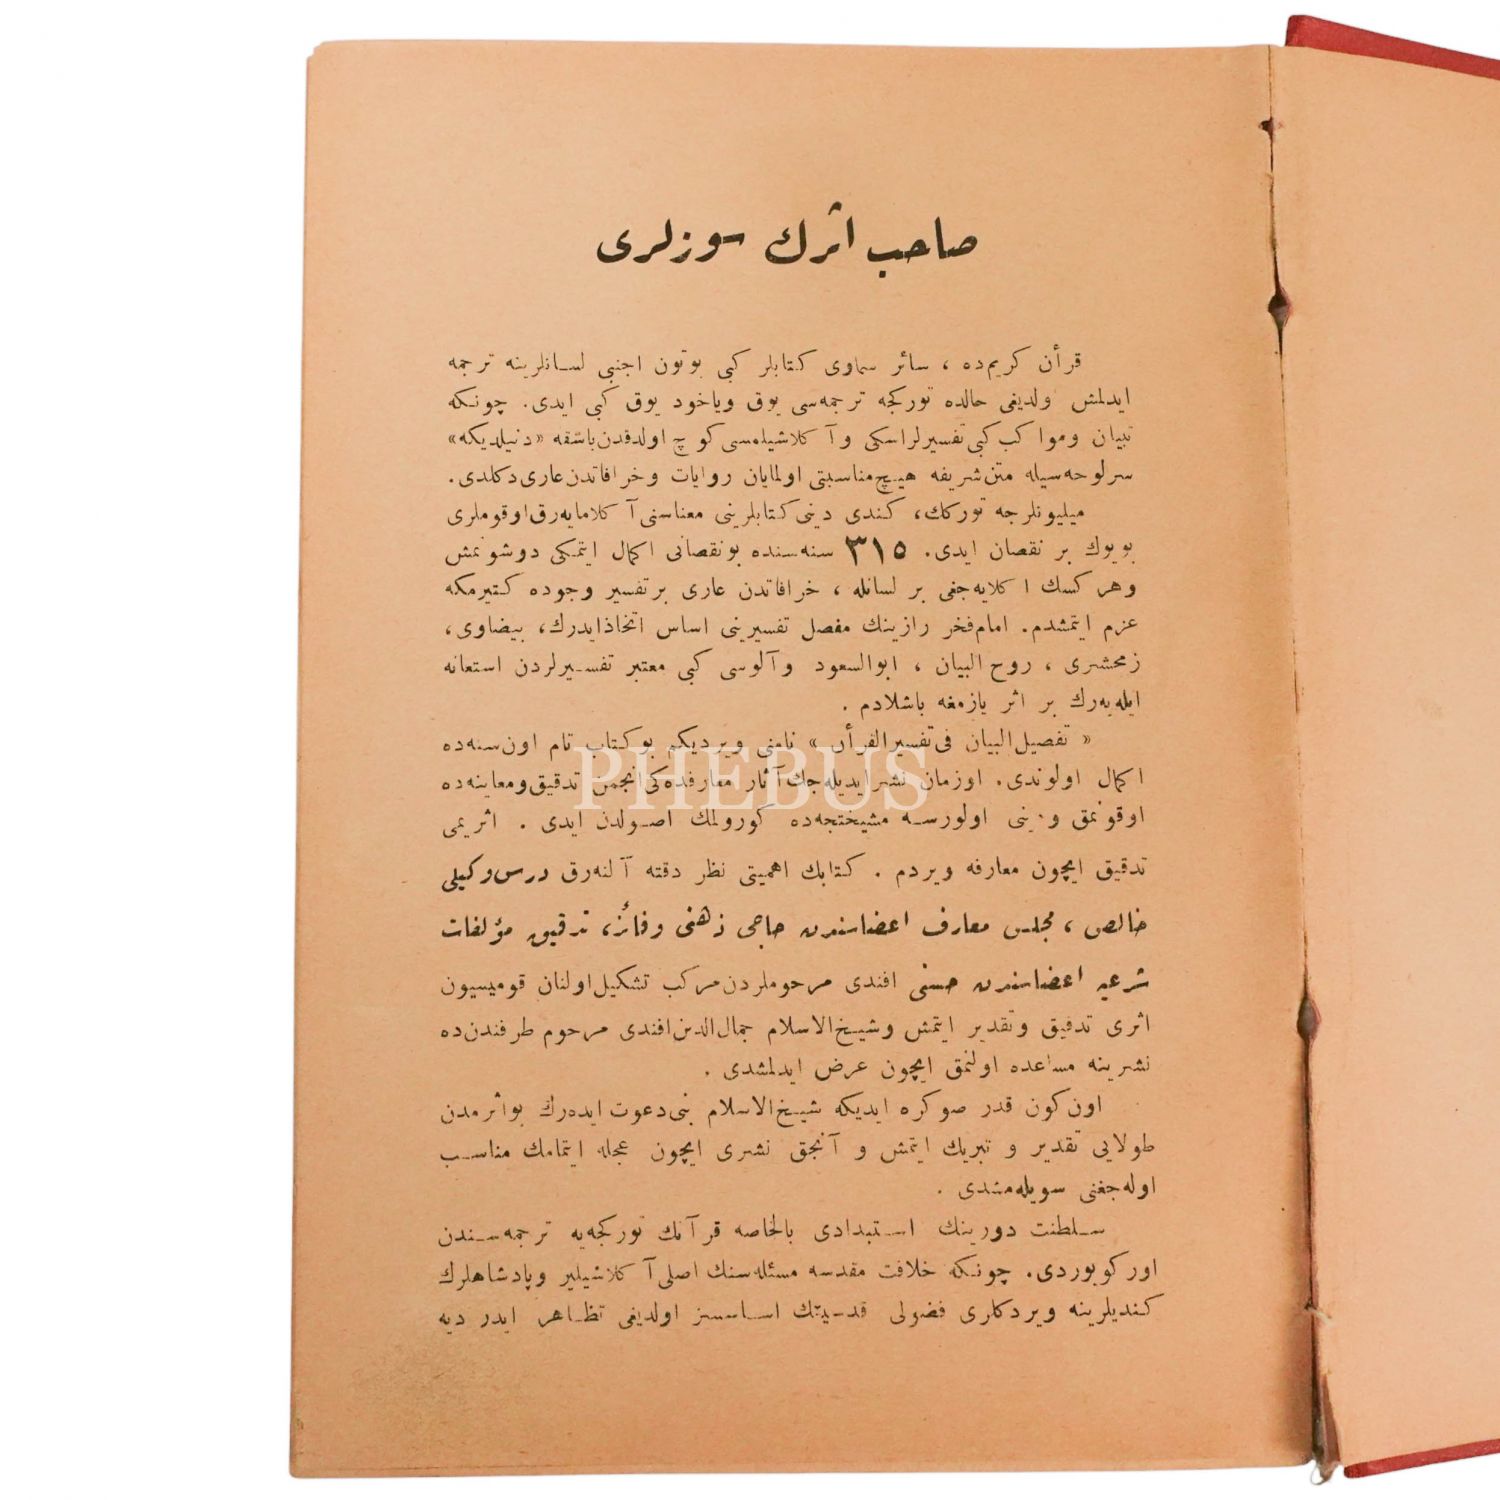 صاحب اثرك سوزلری
قرأن كريم‌ده ، سائر سماوی كتابلر كبی بوتون اجنبی لسانلرينه ترجمه
ايدلمش ولديغی حالده توركجه ترجمه‌سی يوق وياخود يوق كبی ايدی. چونكه
تبيان ومواكب كبی تفسيرلر اسكی و آكلاشيلمسی كوچ اولدقدن باشقه «دنيلديكه»
سرلوحه‌سيله متن شريفه هيچ مناسبتی اولمايان روايات و خرافاتدن عاری دكلدی.
ميليونلرجه توركك، كندی دينی كتابلرينی معناسنی آكلامايه‌رق اوقوملری
بويوك بر نقصان ايدی. ٣١٥ سنه‌سنده بونقصانی اكمال ايتمكی دوشونمش
وهركسك اكلايه‌جغی بر لسانله ، خرافاتدن عاری برتفسير وجوده كتيرمكه
عزم ايتمشدم. امام فخر رازينك مفصل تفسيرينی اساس اتخاذ ايدرك، بيضاوی،
زمحشری ، روح البيان ، ابوالسعود و آلوسی كبی معتبر تفسيرلردن استعانه
ايله‌يه‌رك بر اثر يازمغه باشلادم .
« تفصيل البيان فی تفسير القرأن » نامنی ويرديكم بوكتاب تام اون سنه‌ده
اكمال اولوندی. اوزمان نشر ايديله‌جك آثار معارفده‌كی انجمن تدقيق ومعاينه‌ده
اوقونمق و ينی اولورسه مشيختجه‌ده كورولمك اصولدن ايدی . اثريمی
تدقيق ايچون معارفه ويردم . كتابك اهميتی نظر دقته آلنه‌رق درس وكيلی
خالص ، مجلس معارف اعضاسندن حاجی ذهنی و فائز، تدقيق مؤلفات
شرعيه اعضاسندن حسنی افندی مرحوملردن مركب تشكيل اولنان قوميسيون
اثری تدقيق وتقدير ايتمش و شيخ الاسلام جمال الدين افندی مرحوم طرفندن‌ده
نشرينه مساعده اولنمق ايچون عرض ايدلمشدی .
اون كون قدر صوكره ايديكه شيخ الاسلام بنی دعوت ايده‌رك بواثرمدن
طولايی تقدير و تبريك ايتمش و آنجق نشری ايچون عجله ايتمامك مناسب
اوله‌جغنی سويله‌مشدی .
سلطنت دورينك استبدادی بالخاصه قرآنك توركجه‌يه ترجمه‌سندن
اوركويوردی. چونكه خلافت مقدسه مسئله‌سنك اصلی آكلاشيلير وپادشاهلرك
كنديلرينه ويردكلری فضولی قدسيتك اساسسز اولديغی تظاهر ايدر ديه
PHEBUS